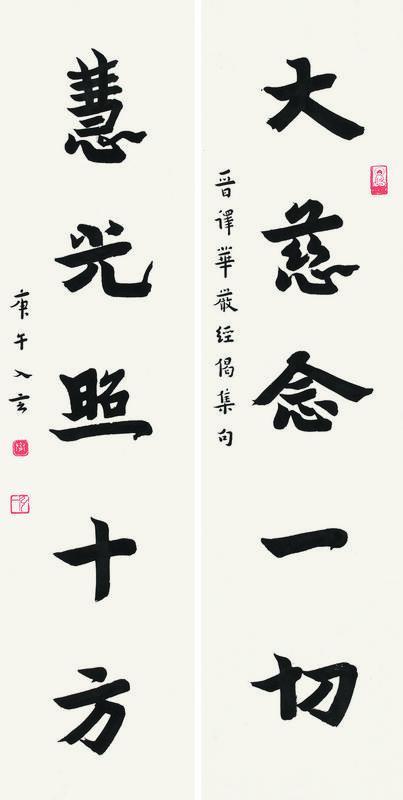 大慈念一切
晋譯華嚴经偈集句
慧光照十方
庚午